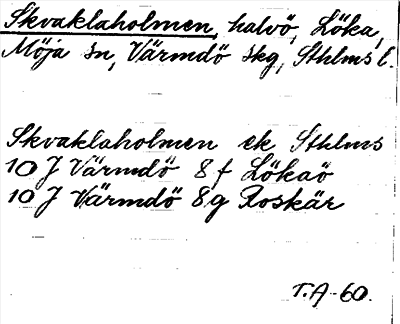 Skvaklaholmen, halvö, Löka,
Möja sn, Värmdö skg, Sthlms l.
Skvaklaholmen ek Sthlms
10 J Värmdö 8 f Lökaö
10 J Värmdö 8 g Roskär
T.A-60.